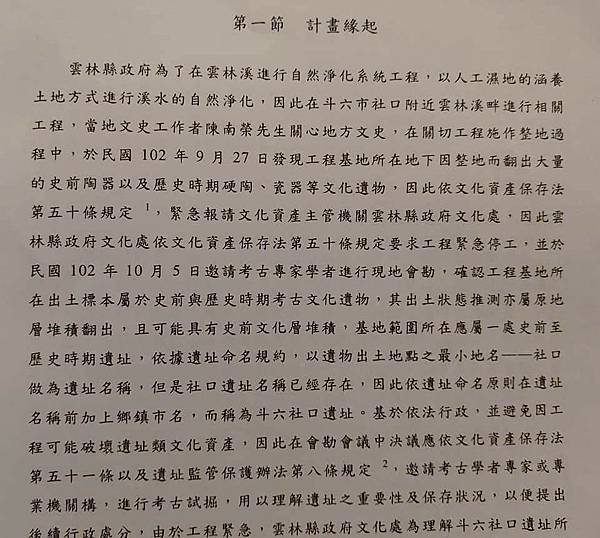 第一節　計畫緣起
雲林縣政府為了在雲林溪進行自然淨化系統工程，以人工濕地的涵養
土地方式進行溪水的自然淨化，因此在斗六市社口附近雲林溪畔進行相關
工程，當地文史工作者陳南榮先生關心地方文史，在關切工程施作整地過
程中，於民國 102 年 9 月 27 日發現工程基地所在地下因整地而翻出大量
的史前陶器以及歷史時期硬陶、瓷器等文化遺物，因此依文化資產保存法
第五十條規定 1，緊急報請文化資產主管機關雲林縣政府文化處．因此雲
林縣政府文化處依文化資產保存法第五十條規定要求工程緊急停工，並於
民國 102 年 10 月 5 日邀請考古專家學者進行現地會勘，確認工程基地所
在出土標本屬於史前與歷史時期考古文化遺物，其出土狀態推測亦屬原地
層堆積翻出，且可能具有史前文化層堆積，基地範圍所在應屬一處史前至
歷史時期遺址，依據遺址命名規約，以遺物出土地點之最小地名——社口
做為遺址名稱，但是社口遺址名稱已經存在，因此依遺址命名原則在遺址
名稱前加上鄉鎮市名，而稱為斗六社口遺址。基於依法行政，並避免因工
程可能破壞遺址類文化資產，因此在會勘會議中決議應依文化資產保存法
第五十一條以及遺址監管保護辦法第八條規定 2，邀請考古學者專家或專
業機關構，進行考古試掘，用以理解遺址之重要性及保存狀況，以便提出
後續行政處分，由於工程緊急，雲林縣政府文化處為理解斗六社口遺址所